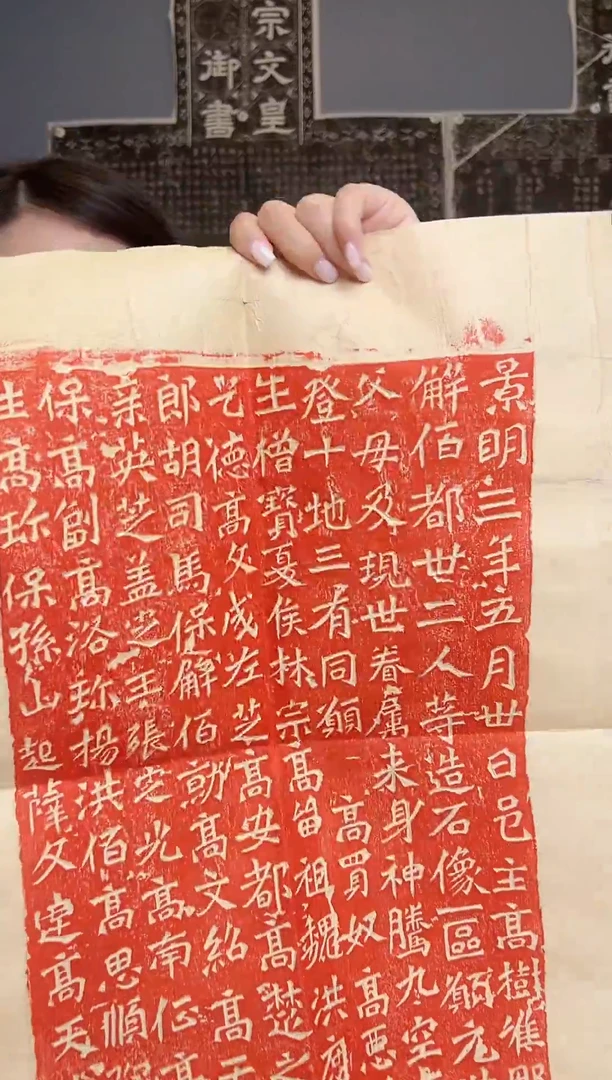 宗文皇
御書
景明三年五月卅日邑主高樹唯
解佰都卅二人等造石像一區願元
父母及現世眷屬来身神騰九空
登十地三有同願 高買奴 高悪
生僧寶夏侯林宗高留祖魏洪度
乞德高文成左芝高安都高楚之
郎胡司馬保解佰勍高文紹高天
英芝盖芝王張芝光高南征高
保高副高洛珎楊洪佰高思順
生高珎保孫山起薩文達高天